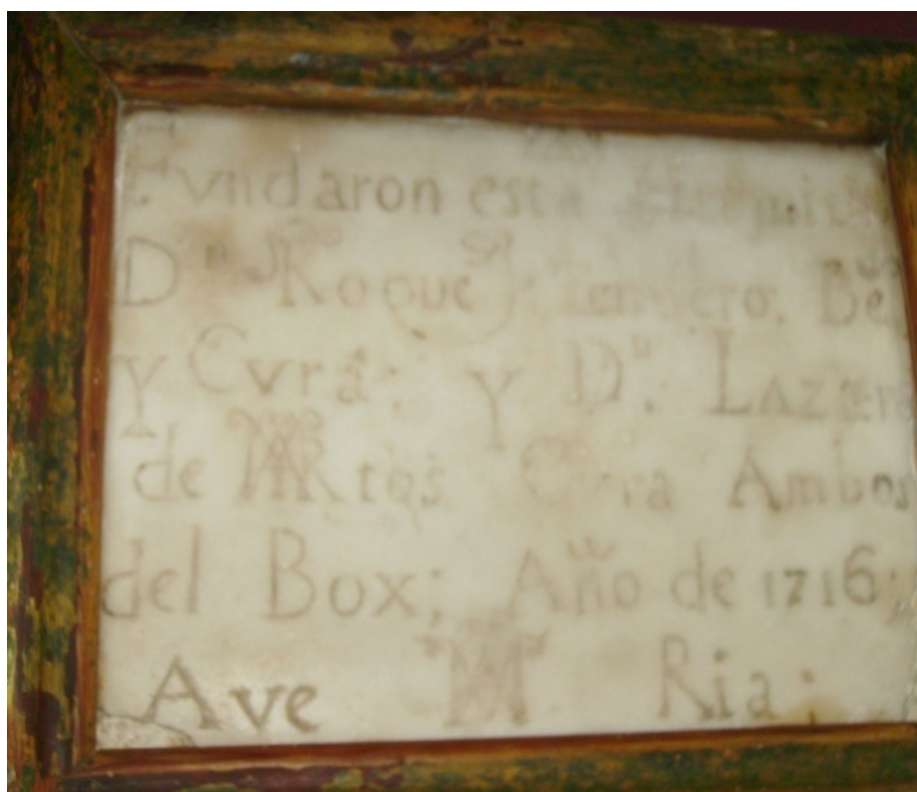 Fvndaron esta
Dⁿ Roque Be^do
y Cvra: y Dⁿ. Lazaro
de MARtos Cvra Ambos
del Box; Año de 1716;
Ave MA Ria: